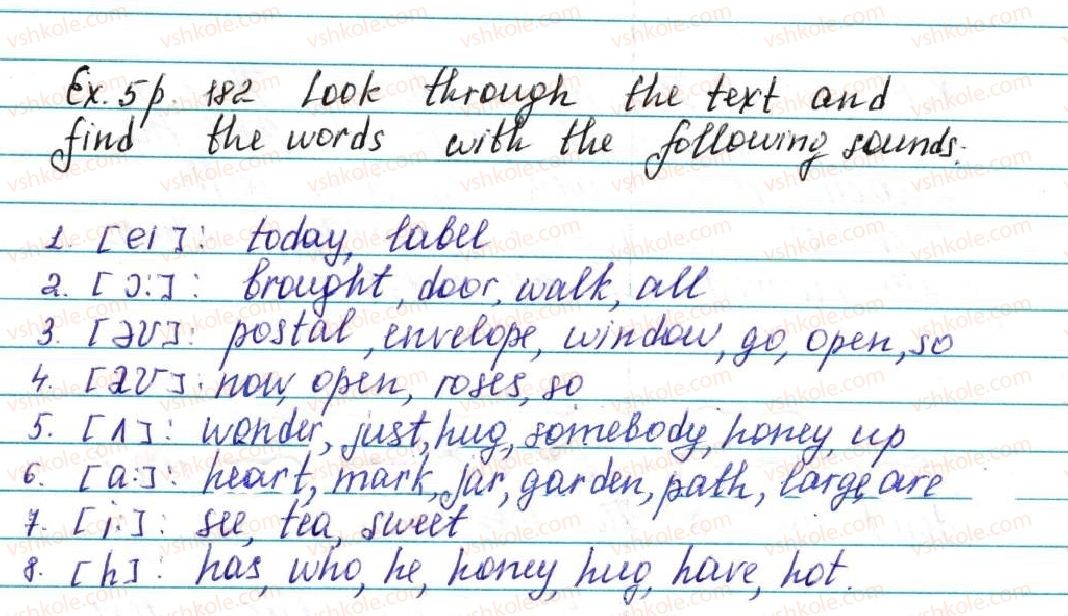 Ex. 5 p. 182 Look through the text and
find the words with the following sounds.
1. [eɪ]: today, label
2. [ɔ:]: brought, door, walk, all
3. [əʊ]: postal, envelope, window, go, open, so
4. [aʊ]: now, open, roses, so
5. [ʌ]: wonder, just, hug, somebody, honey, up
6. [a:]: heart, mark, jar, garden, path, large, are
7. [i:]: see, tea, sweet
8. [h]: has, who, he, honey, hug, have, hot.
vshkole.com